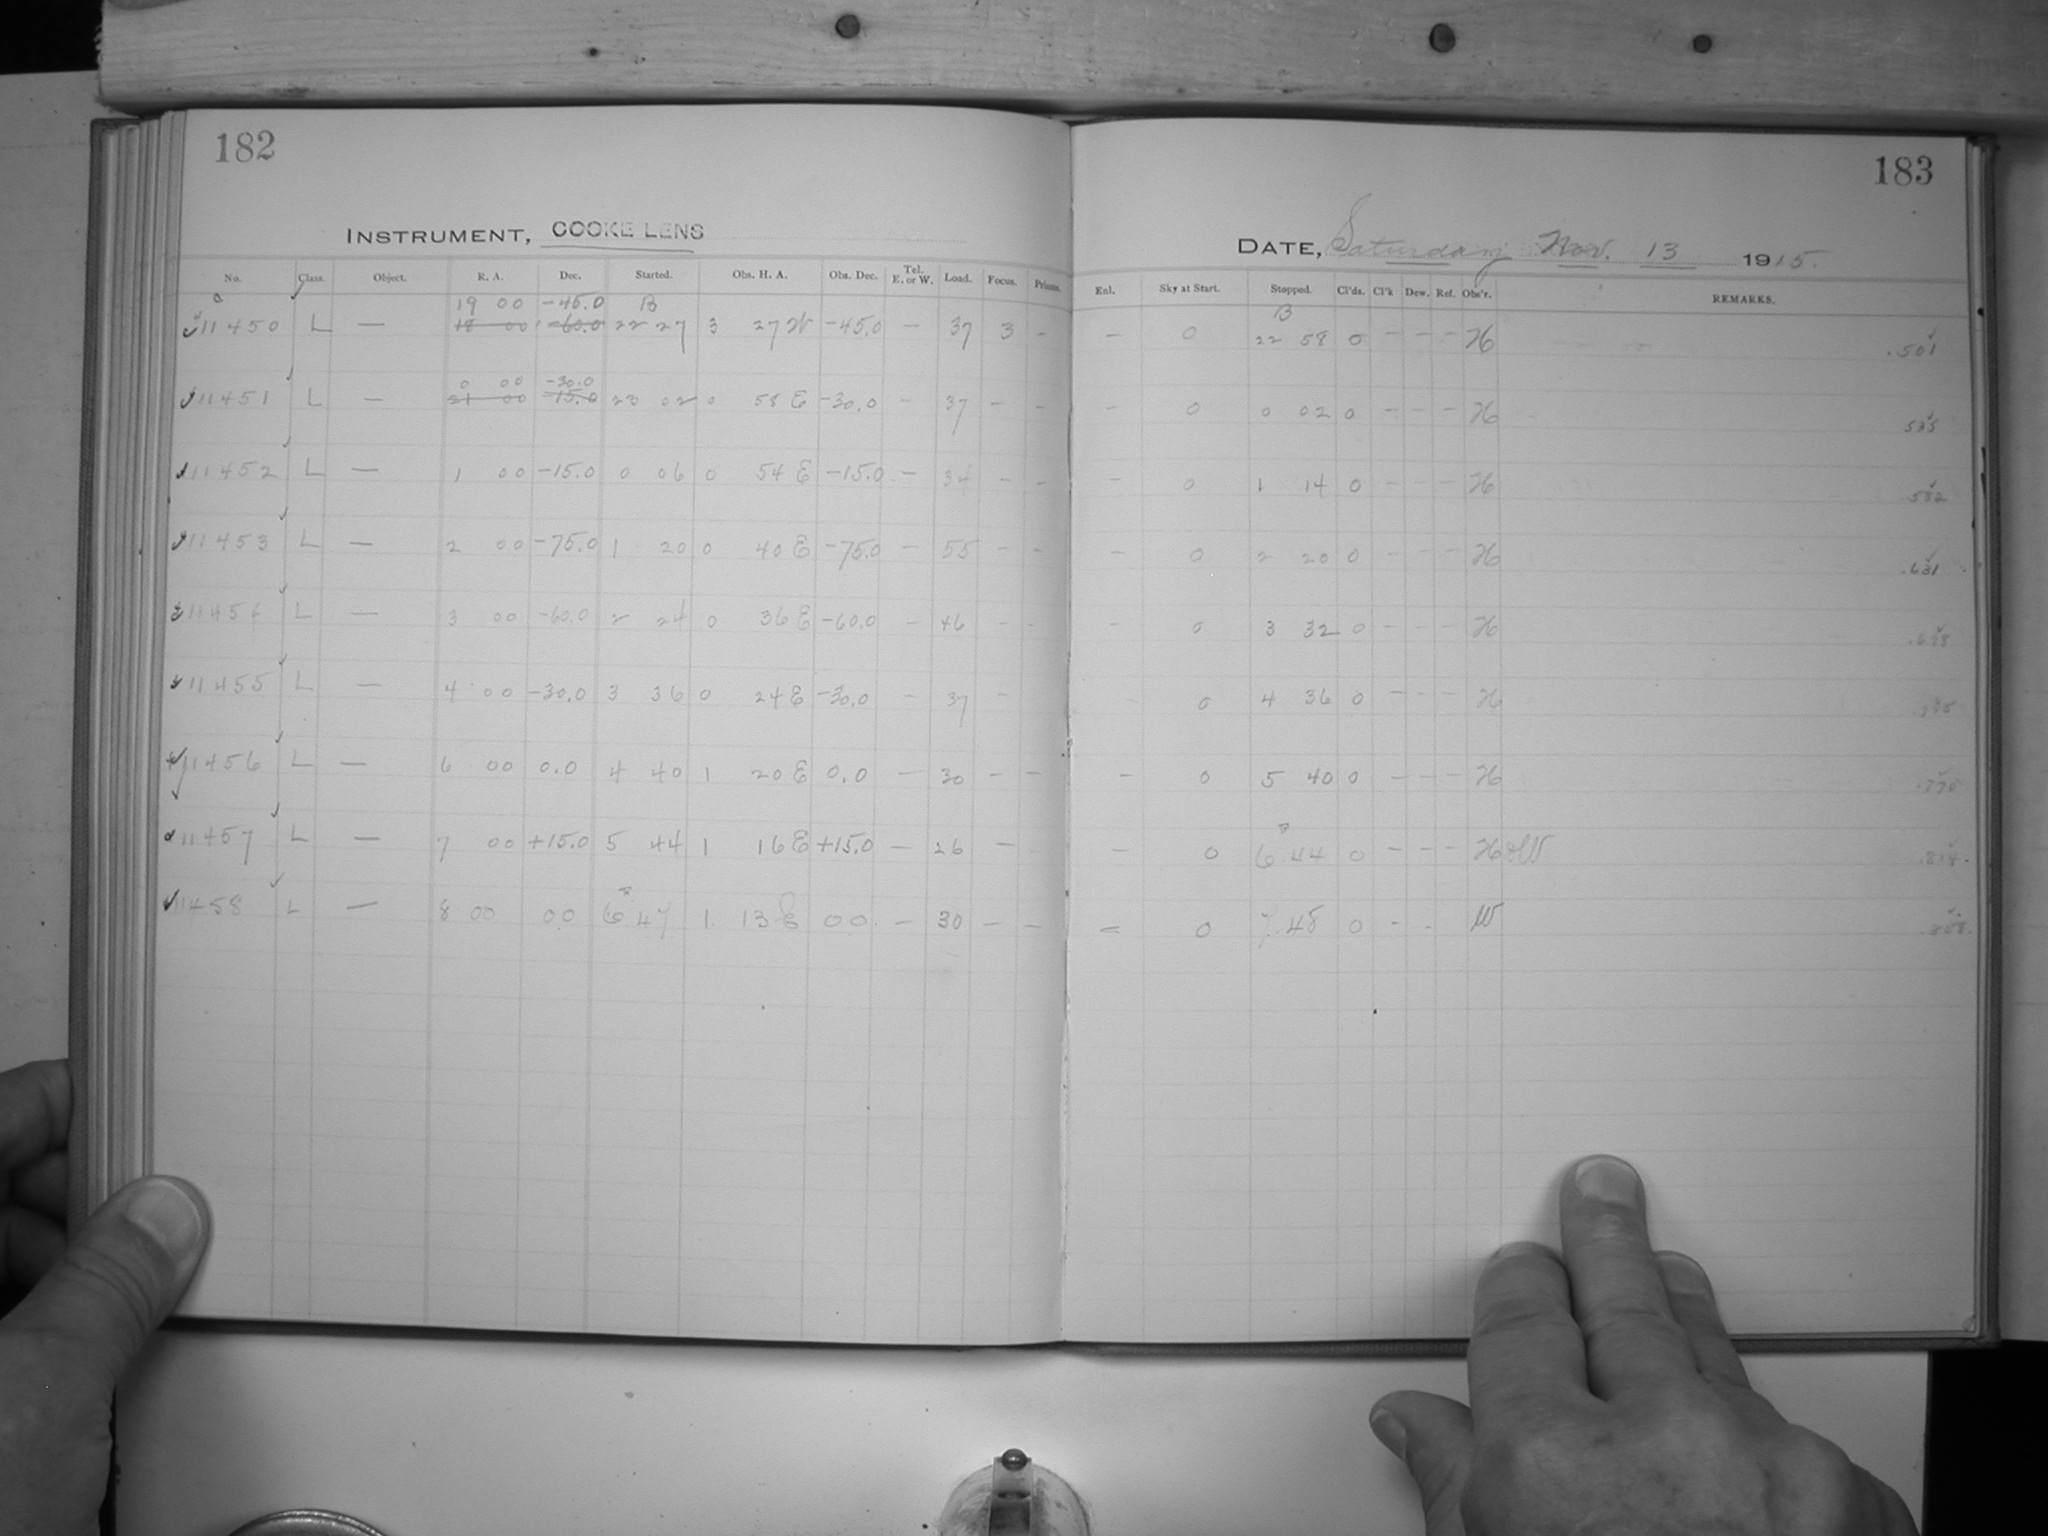 182
183
INSTRUMENT, COOKE LENS
DATE, Saturday Nov. 13 1915.
No. Class. Object. R. A. Dec. Started. Obs. H. A. Obs. Dec. Tel. E. or W. Load. Focus. Prisms. Enl. Sky at Start. Stopped. Cl'ds. Cl'k Dew. Ref. Obs'r. REMARKS.
19 00 -45.0 B B
11450 L — 18 00 -60.0 22 27 3 27 W -45.0 — 37 3 - — 0 22 58 0 - - - H .501
0 00 -30.0
11451 L — 21 00 -15.0 23 02 0 58 E -30.0 - 37 - - - 0 0 02 0 - - - H 535
11452 L — 1 00 -15.0 0 06 0 54 E -15.0 - 34 - - - 0 1 14 0 - - - H .582
11453 L — 2 00 -75.0 1 20 0 40 E -75.0 - 55 - - - 0 2 20 0 - - - H .631
11454 L — 3 00 -60.0 2 24 0 36 E -60.0 - 46 - - - 0 3 32 0 - - - H
11455 L — 4 00 -30.0 3 36 0 24 E -30.0 - 37 - 0 4 36 0 - - - H
11456 L — 6 00 0.0 4 40 1 20 E 0.0 — 30 - - - 0 5 40 0 - - - H .770
11457 L — 7 00 +15.0 5 44 1 16 E +15.0 — 26 - - 0 6 44 0 - - - H & W .814
11458 L — 8 00 00 6 47 1 13 E 00 — 30 - - - 0 7.48 0 - - W